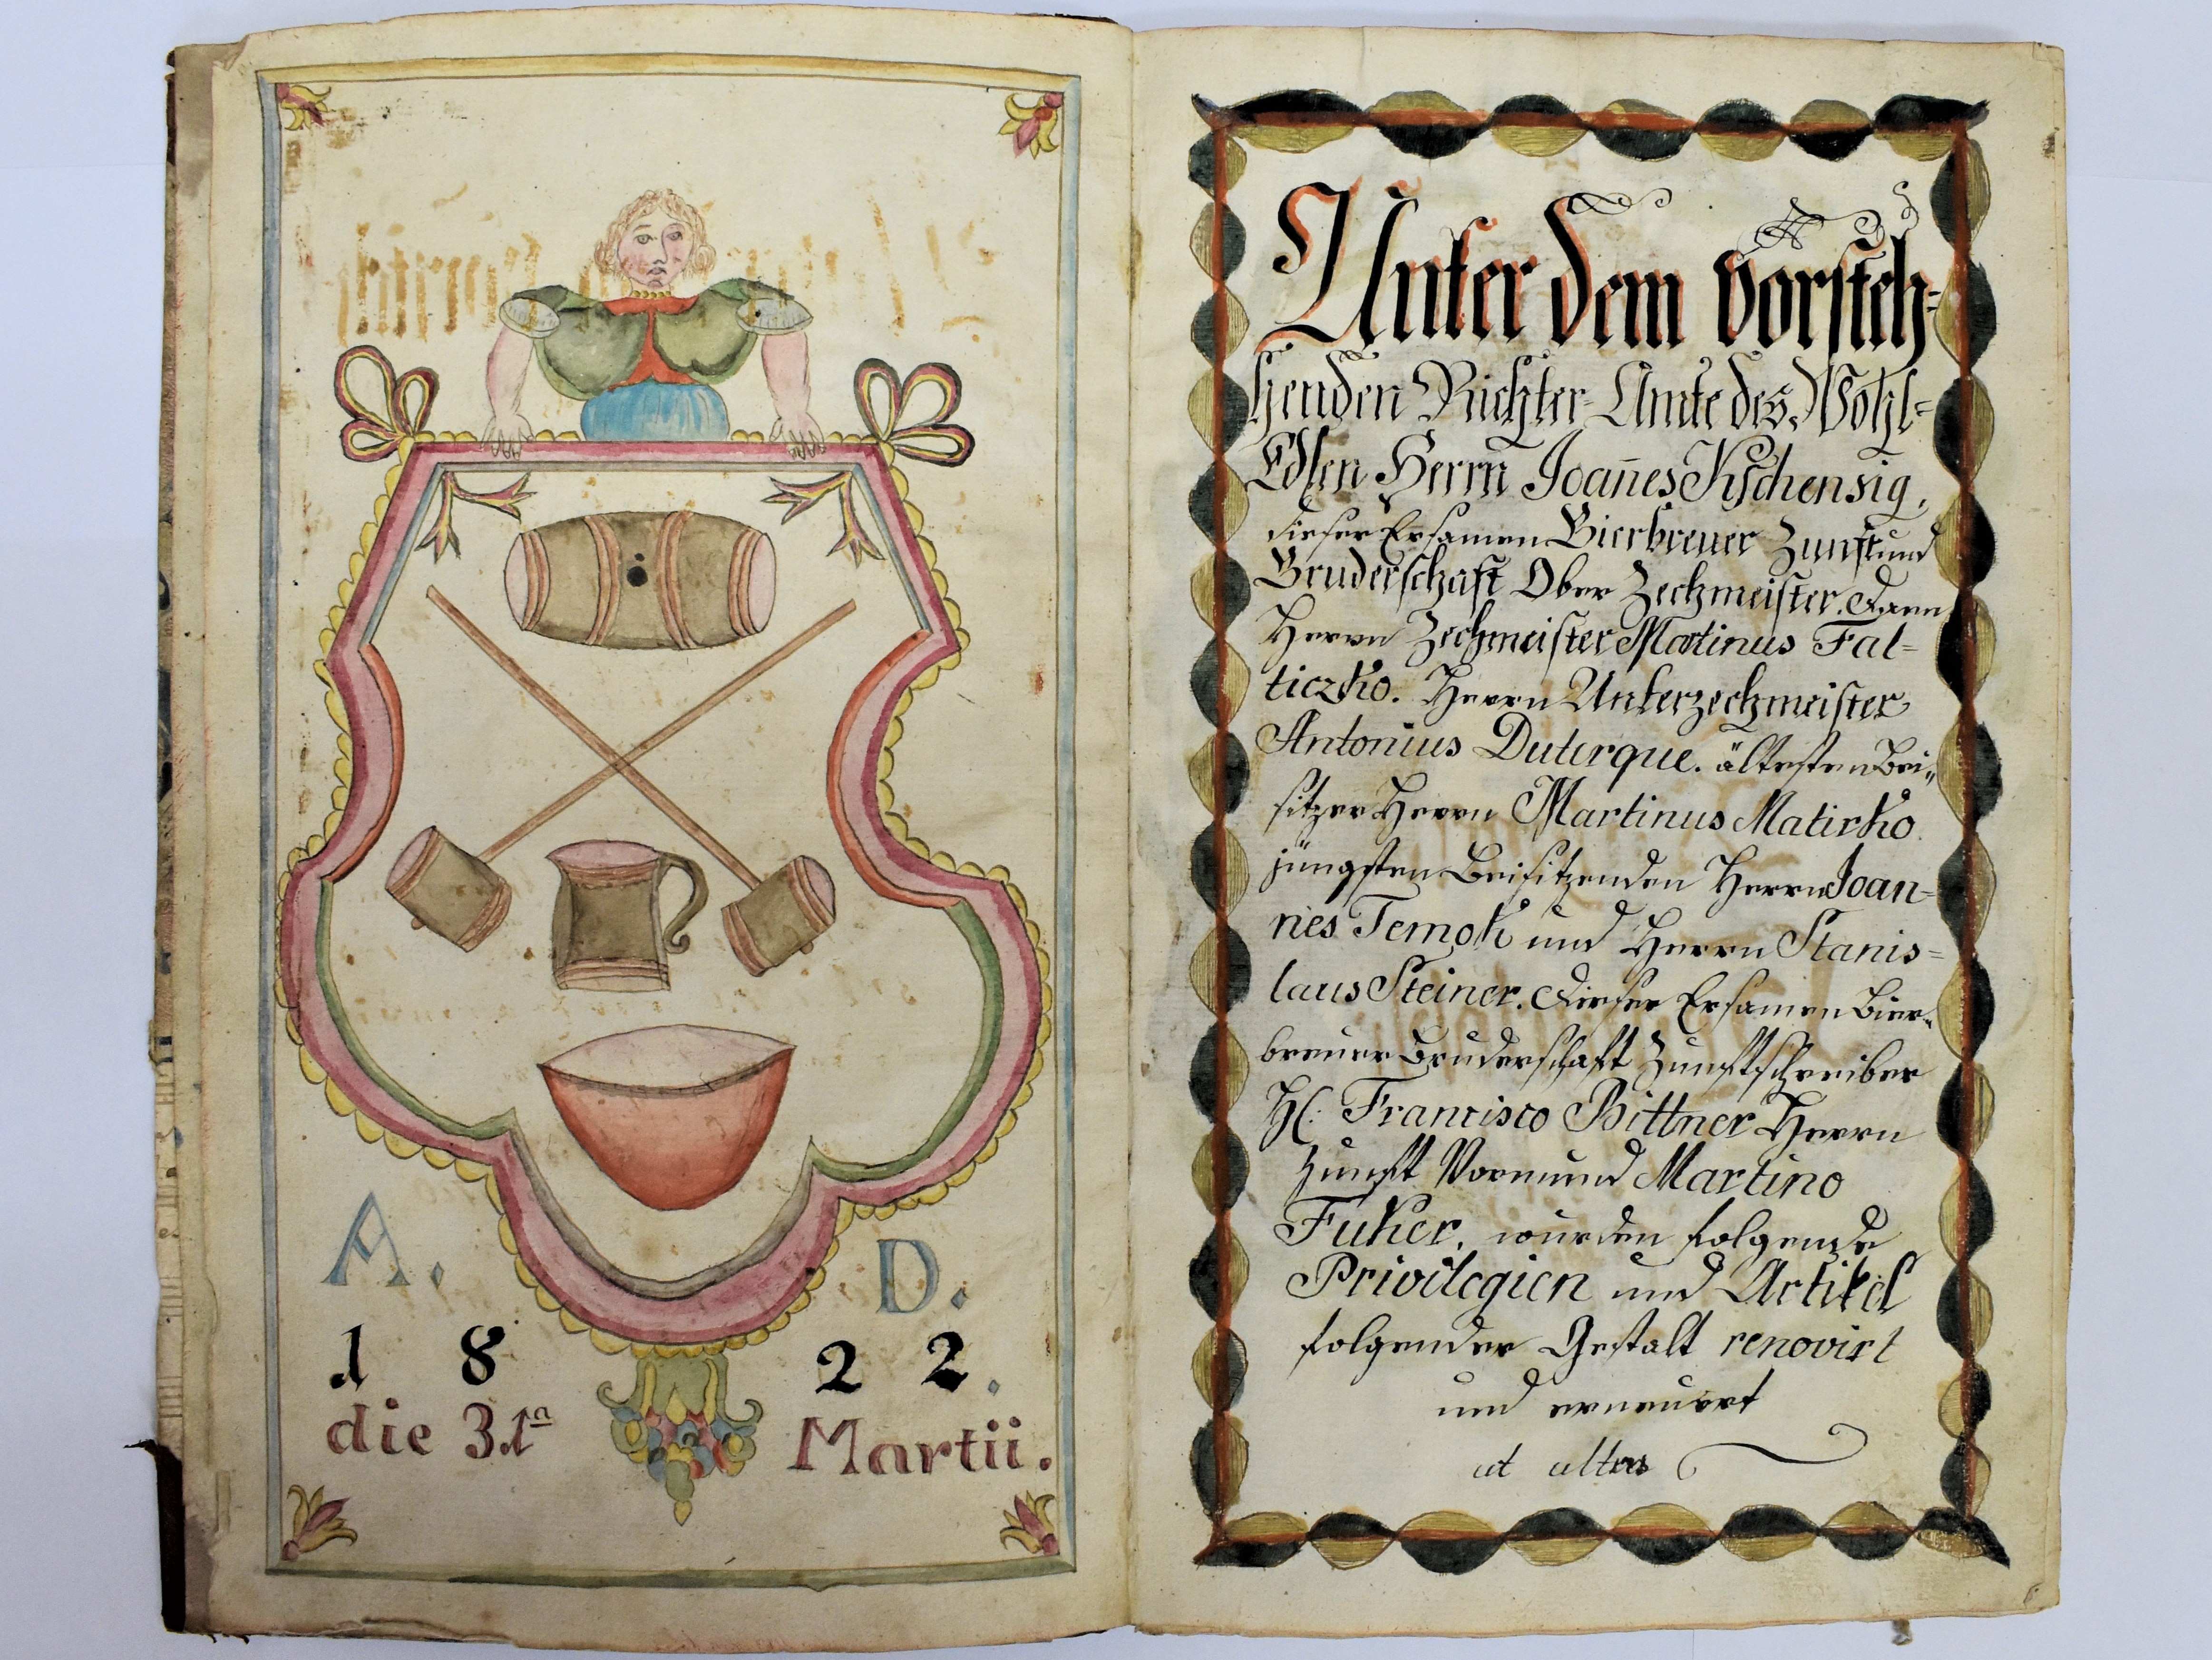 A. D.
1 8 2 2.
die 31ª Martii.
Unter dem vorsteh=
henden Richter Amte des Wohl=
Edlen Herrn Joan̅es Kschensig,
dieser Ersamen Bierbreuer Zunft und
Bruderschaft Ober Zechmeister. dann
Herrn Zechmeister Martinus Fal=
ticzko. Herrn Unterzechmeister
Antonius Duterque. ältesten Bei„
sitzer Herrn Martinus Matirko
jüngsten Beisitzenden Herrn Joan=
nes Temok und Herrn Stanis=
laus Steiner. dieser Ersamen Bier„
breuer Bruderschaft Zunftschreiber
H: Francisco Bittner Herrn
Zunft Vormund Martino
Fuker, wurden folgende
Privilegien und Artikel
folgender Gestalt renovirt
und erneuert
ut